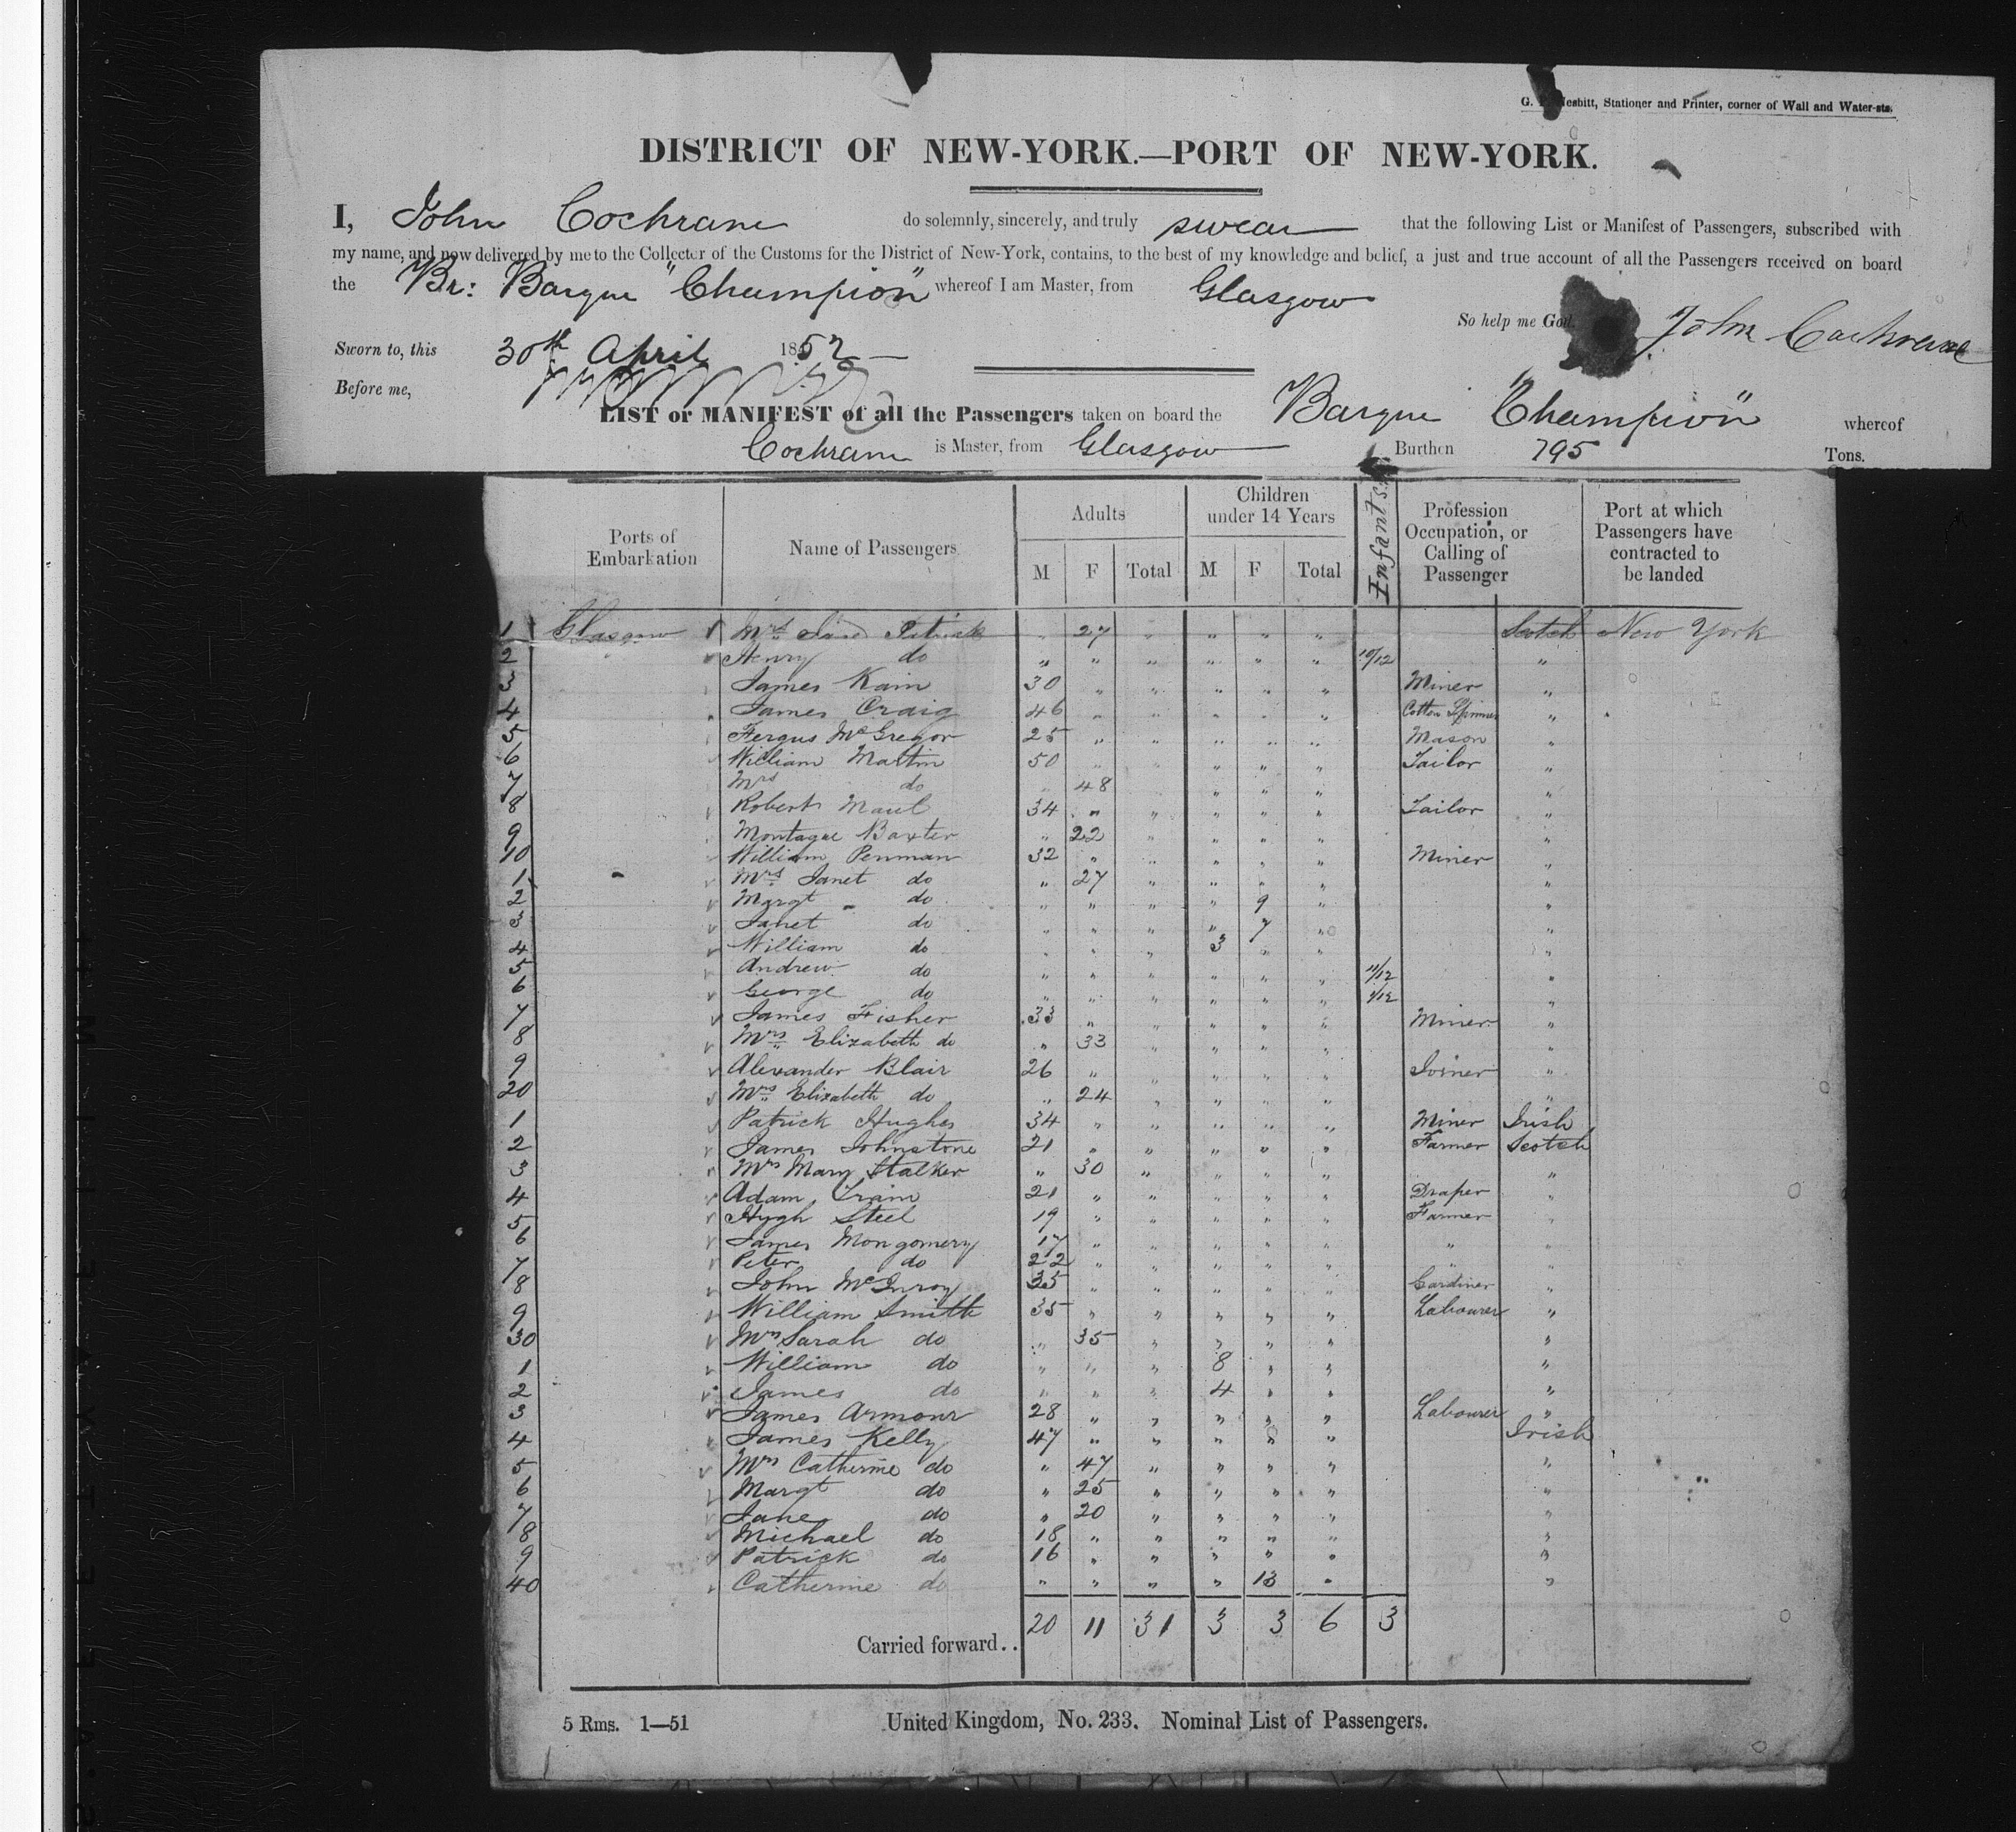 G. Nesbitt, Stationer and Printer, corner of Wall and Water-sts.
DISTRICT OF NEW-YORK.—PORT OF NEW-YORK.
I, John Cochrane do solemnly, sincerely, and truly swear that the following List or Manifest of Passengers, subscribed with
my name, and now delivered by me to the Collector of the Customs for the District of New-York, contains, to the best of my knowledge and belief, a just and true account of all the Passengers received on board
the Br: Barque "Champion" whereof I am Master, from Glasgow
So help me God. John Cochrane
Sworn to, this 30th April 1852
Before me,
LIST or MANIFEST of all the Passengers taken on board the Barque "Champion" whereof
Cochrane is Master, from Glasgow Burthen 795 Tons.
Ports of Embarkation Name of Passengers Adults M F Total Children under 14 Years M F Total Infants Profession Occupation, or Calling of Passenger Port at which Passengers have contracted to be landed
1 Glasgow Mrs Patrick " 27 " " " " Scotch New York
2 Henry do " " " " " " 10/12 "
3 James Kain 30 " " " " " Miner "
4 James Craig 46 " " " " " Cotton Spinner "
5 Fergus McGregor 25 " " " " " Mason "
6 William Martin 50 " " " " " Tailor "
7 Mrs do " 48 " " " "
8 Robert Maul 34 " " " " " Tailor "
9 Montague Baxter " 22 " " " " "
10 William Penman 32 " " " " " Miner "
1 Mrs Janet do " 27 " " " " "
2 Margt do " " " " 9 " "
3 Janet do " " " " 7 " "
4 William do " " " 3 " " "
5 Andrew do " " " " " " 11/12 "
6 George do " " " " " " 1/12 "
7 James Fisher 33 " " " " " Miner "
8 Mrs Elizabeth do " 33 " " " " "
9 Alexander Blair 26 " " " " " Joiner "
20 Mrs Elizabeth do " 24 " " " " "
1 Patrick Hughes 34 " " " " " Miner Irish
2 James Johnstone 21 " " " " " Farmer Scotch
3 Mrs Mary Stalker " 30 " " " " "
4 Adam Train 21 " " " " " Draper "
5 Hugh Steel 19 " " " " " Farmer "
6 James Montgomery 17 " " " " " " "
7 Peter do 22 " " " " " " "
8 John McInroy 35 " " " " " Gardiner "
9 William Smith 35 " " " " " Labourer "
30 Mrs Sarah do " 35 " " " " "
1 William do " " " 8 " " "
2 James do " " " 4 " " "
3 James Armour 28 " " " " " Labourer "
4 James Kelly 47 " " " " " Irish
5 Mrs Catherine do " 47 " " " " "
6 Margt do " 25 " " " " "
7 Jane do " 20 " " " " "
8 Michael do 18 " " " " " "
9 Patrick do 16 " " " " " "
40 Catherine do " " " " 13 " "
Carried forward.. 20 11 31 3 3 6 3
5 Rms. 1—51 United Kingdom, No. 233. Nominal List of Passengers.